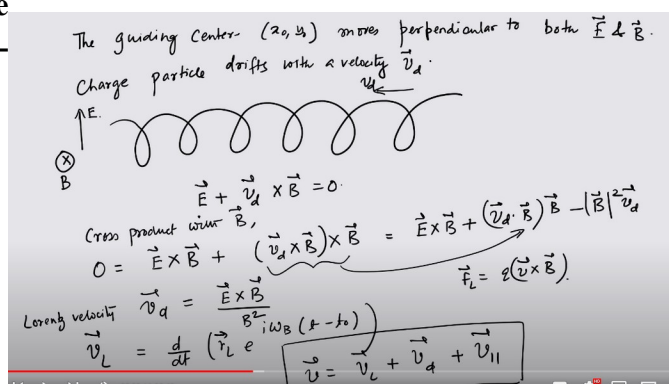 e
The guiding center (x₀, y₀) moves perpendicular to both E⃗ & B⃗.
Charge particle drifts with a velocity v⃗_d.
v_d ←
↑E.
ⓧ
B
E⃗ + v⃗_d × B⃗ = 0.
Cross product with B⃗,
0 = E⃗ × B⃗ + (v⃗_d × B⃗) × B⃗ = E⃗ × B⃗ + (v⃗_d · B⃗) B⃗ − |B⃗|² v⃗_d
F⃗_L = q(v⃗ × B⃗).
Lorentz velocity v⃗_d = E⃗ × B⃗ / B²
v⃗_L = d/dt (r⃗_L e^{iω_B (t − t₀)})
v⃗ = v⃗_L + v⃗_d + v⃗_||